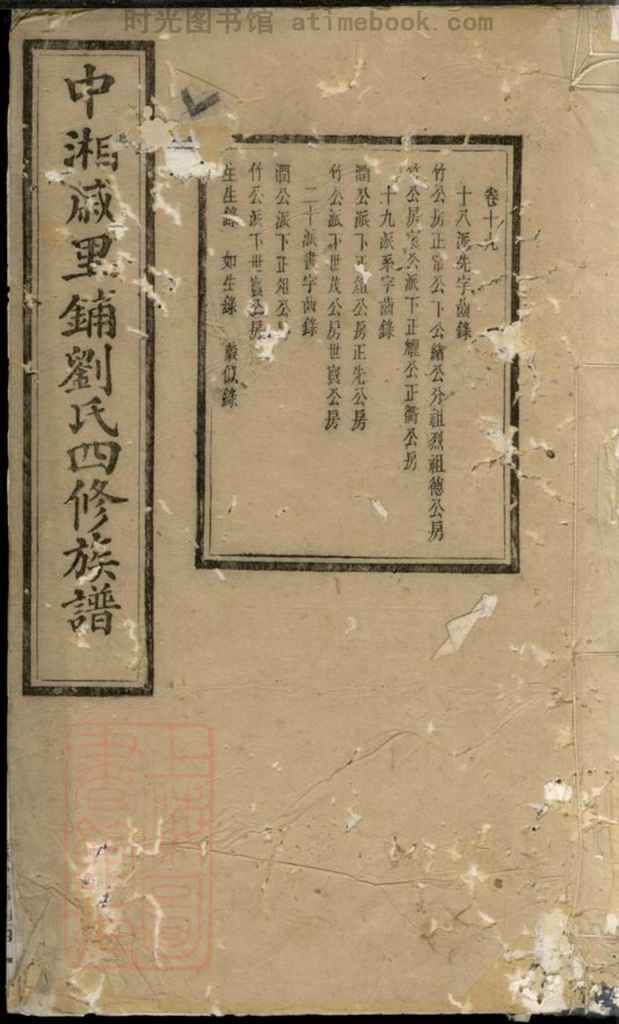 时光图书馆 atimebook.com
卷十九
十八派先字齒錄
竹公房正常公下公緒公分祖烈祖德公房
竹公房實公派下正耀公正衢公房
十九派系字齒錄
澗公派下正紐公房正先公房
竹公派下世茂公房世賓公房
二十派書字齒錄
澗公派下正紐公房
竹公派下世賓公房
生生錄 如生錄 蕆似錄
中湘戚里鋪劉氏四修族譜
上海圖書館藏